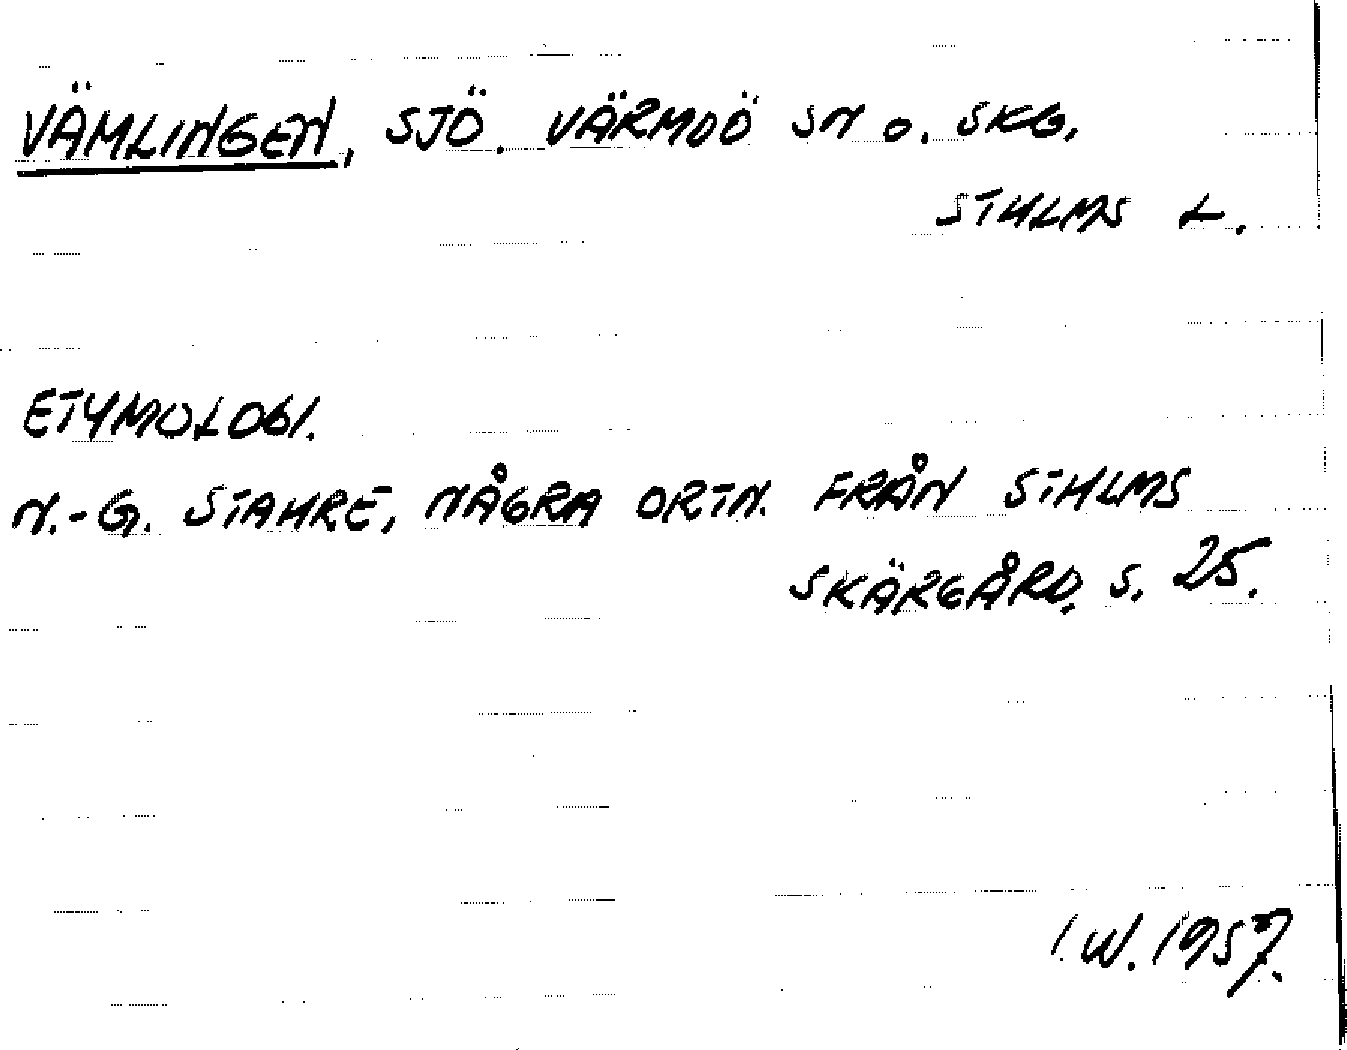 VÄMLINGEN, SJÖ. VÄRMDÖ SN o. SKG,
STHLMS L.
ETYMOLOGI.
N.-G. STAHRE, NÅGRA ORTN. FRÅN STHLMS
SKÄRGÅRD, S. 25.
I.W. 1957.